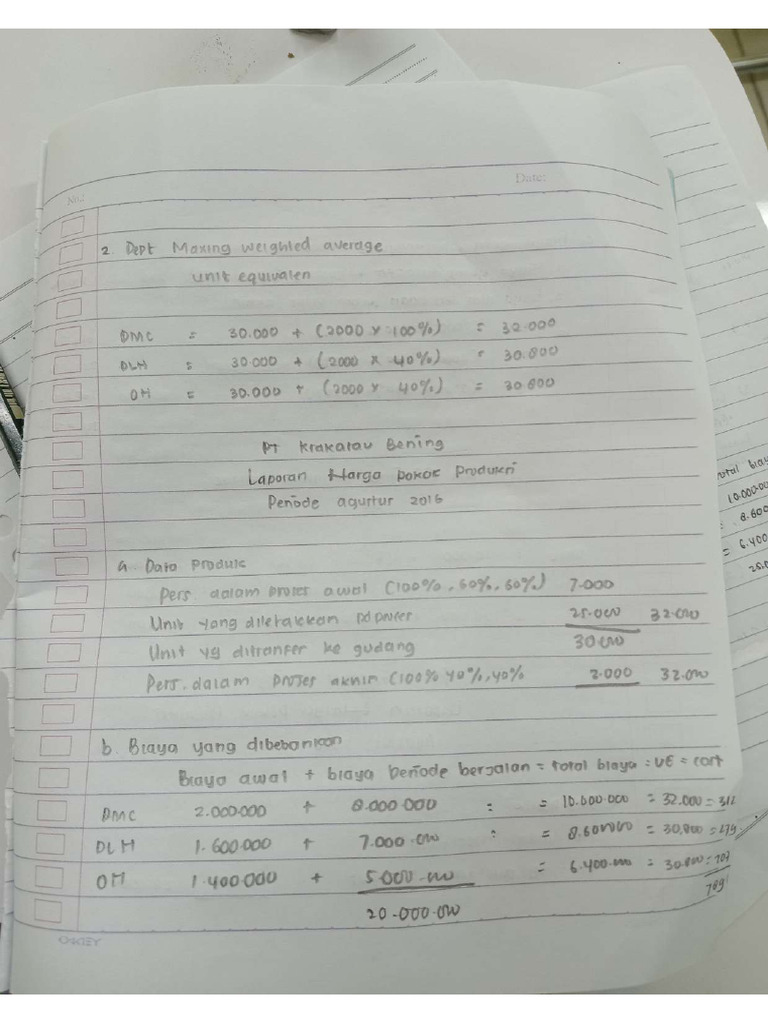 No.:
Date:
2. Dept Maxing weighted average
unit equivalen
DMC = 30.000 + (2000 x 100%) = 32.000
DLH = 30.000 + (2000 x 40%) = 30.800
OH = 30.000 + (2000 x 40%) = 30.800
PT Krakatau Bening
Laporan Harga pokok Produksi
Periode agustus 2016
a. Data Produk
Pers dalam proses awal (100%, 60%, 60%) 7.000
Unit yang diletakkan pd proses 25.000 32.000
Unit yg ditranfer ke gudang 30.000
Pers. dalam proses akhir (100% 40%, 40% 2.000 32.000
b. Biaya yang dibebankan
Biaya awal + biaya periode berjalan = total biaya : UE = cost
DMC 2.000.000 + 8.000.000 : = 10.000.000 = 32.000 = 312
DLH 1.600.000 + 7.000.000 : = 8.600.000 = 30,800 = 279
OH 1.400.000 + 5.000.000 = 6.400.000 = 30.800 =
20.000.000
OKEY
total biay
10.000.00
: 8.600
= 6.400
25.0